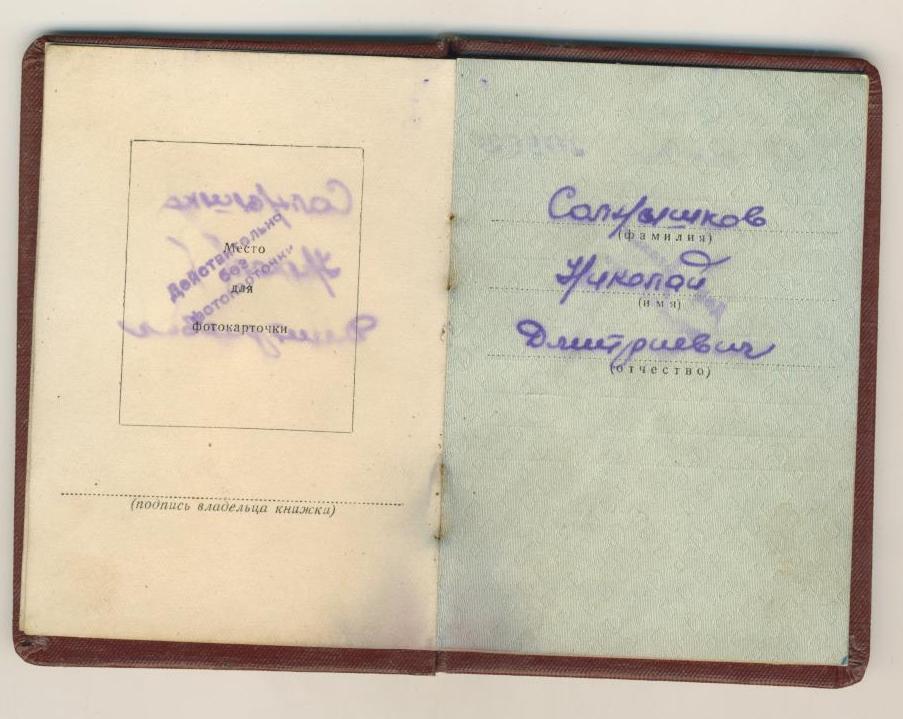 Место
для
фотокарточки
Действительно
без
фотокарточки
(подпись владельца книжки)
(фамилия)
Николай
(имя)
Дмитриевич
(отчество)